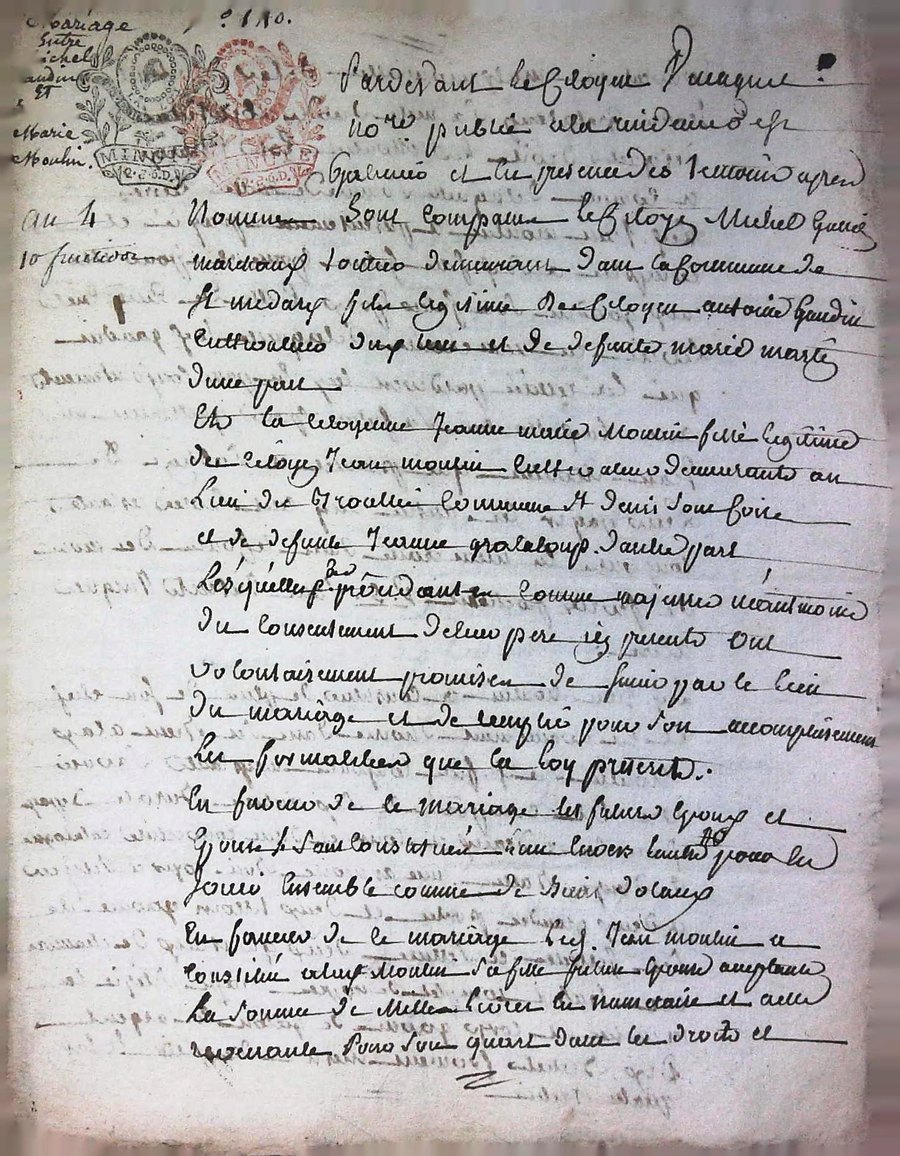 Mariage
Entre
Michel
Gaudin
Et
Marie
Moulin.
n.° 110.
MINUTE
an 4
10 fructidor
Pardevant le Citoyen
No.re public a la residence d
et en presence des temoins apres
Nommes Sont Comparus le Citoyen Michel Gaudin
demeurant dans la Commune de
St medard fils legitime De Citoyen antoine Gaudin
Cultivateur du lieu et de defunte marie
d'une part
Et la Citoyenne Jeanne marie Moulin fille legitime
de Citoyen Jean moulin Cultivateur demeurante au
Lieu de Commune St denis Sous Coise
et de defunte Jeanne grataloup. d'autre part
Lesquelles procedant Comme majeurs néantmoins
Du Consentement de leur pere icy presents ont
volontairement promis de s'unir par le lien
Du mariage et de remplir pour Son accomplissement
Les formalites que la loy prescrit.
En faveur de ce mariage les futurs Epoux et
Epouse Se Sont Constitués tous leurs droits pour en
Jouir Ensemble comme de Biens dotaux
En faveur de ce mariage led. Jean moulin a
Constitué a lad. Moulin Sa fille future Epouse acceptante
La Somme de Mille livres en numeraire et a elle
revenante pour Son quart dans les droits et